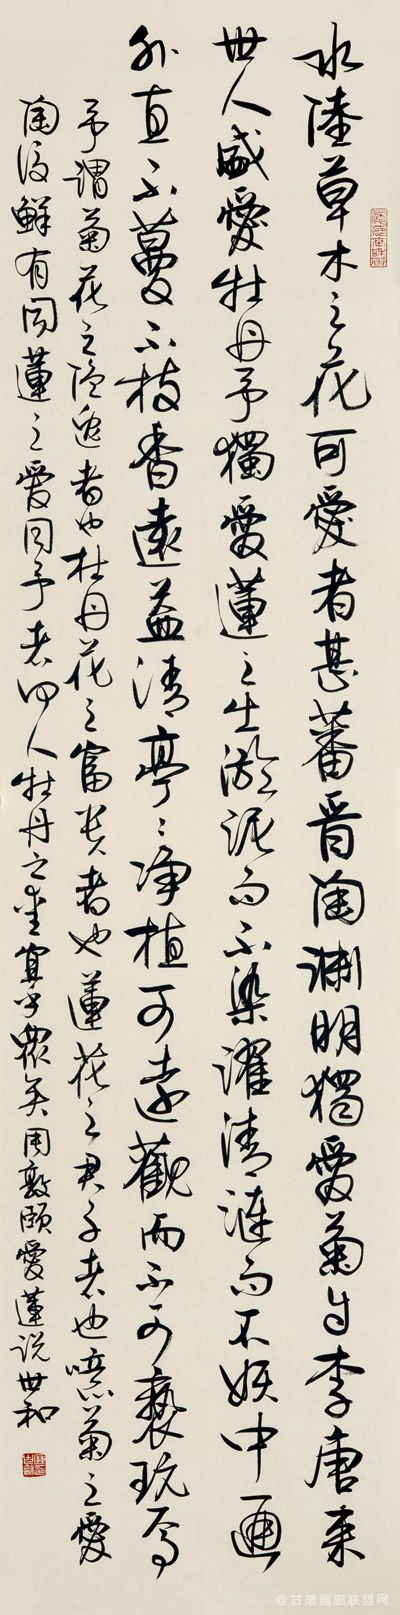 水陸草木之花可愛者甚蕃晋陶渊明獨愛菊自李唐来
世人盛愛牡丹予獨愛蓮之出淤泥而不染濯清漣而不妖中通
外直不蔓不枝香遠益清亭〻净植可遠觀而不可褻玩焉
予謂菊花之隐逸者也牡丹花之富貴者也蓮花之君子者也噫菊之愛
陶後鮮有闻蓮之愛同予者何人牡丹之愛宜乎眾矣周敦頤愛蓮说世和
@甘肃画廊联盟网